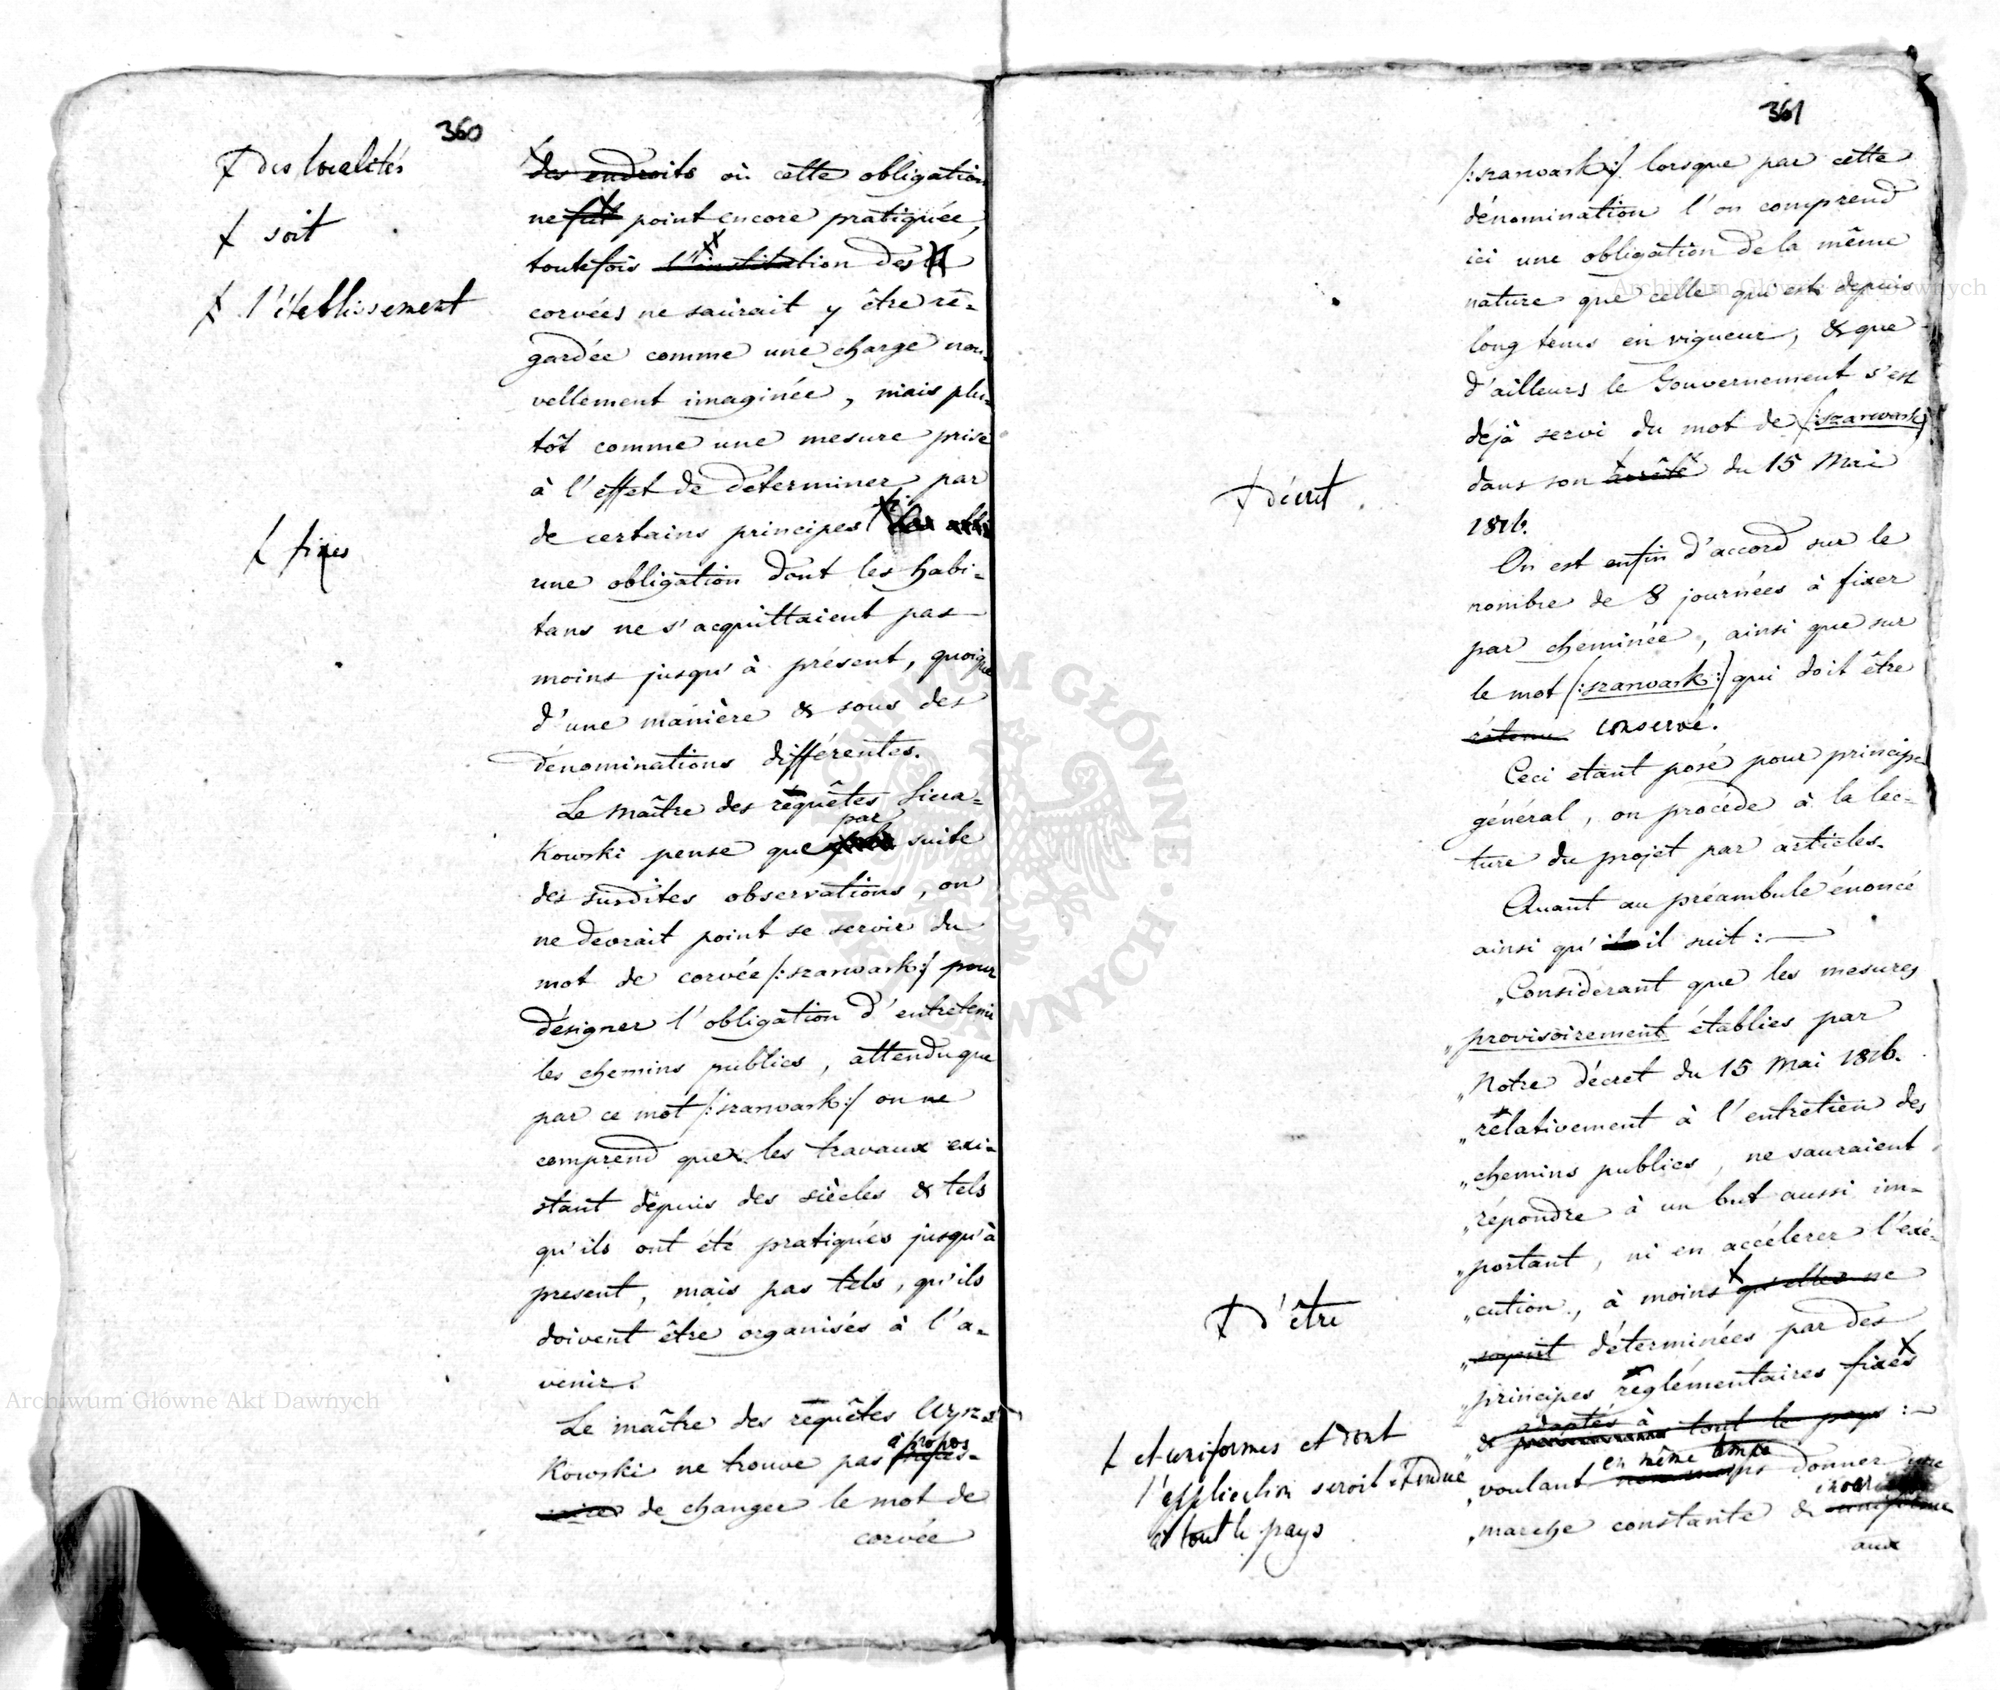 360
Ɨ des localités
Ɨ soit
Ɨ l'établissement
Ɨ fixes
des endroits où cette obligation
ne fut point encore pratiquée,
toutefois l'institution des
corvées ne saurait y être re-
gardée comme une charge nou-
vellement imaginée, mais plu-
tôt comme une mesure prise
à l'effet de determiner par
de certains principes
une obligation dont les habi-
tans ne s'acquittaient pas
moins jusqu'à présent, quoique
d'une manière & sous des
dénominations différentes.
Le maître des requêtes Siera-
par
kowski pense que suite
des susdites observations, on
ne devrait point se servir du
mot de corvée /:szarwark:/ pour
désigner l'obligation d'entretenir
les chemins publics, attendu que
par ce mot /:szarwark:/ on ne
comprend que les travaux exi-
stant depuis des siècles & tels
qu'ils ont été pratiqués jusqu'à
present, mais pas tels, qu'ils
doivent être organisés à l'a-
venir.
Le maître des requêtes Wysz-
à propos
kowski ne trouve pas néces-
saire de changer le mot de
corvée
361
/:szarwark:/ lorsque par cette
dénomination l'on comprend
ici une obligation de la même
nature que celle qui est depuis
long tems en vigueur, & que
d'ailleurs le Gouvernement s'est
déjà servi du mot de /:szarwark:/
dans son arrêté du 15 Mai
1816.
On est enfin d'accord sur le
nombre de 8 journées à fixer
par cheminée, ainsi que sur
le mot /:szarwark:/ qui doit être
retenu conservé.
Ceci etant posé pour principe
général, on procède à la lec-
ture du projet par articles.
Quant au préambule énoncé
ainsi qu'il suit :
„Considérant que les mesures
„provisoirement établies par
„Notre décret du 15 Mai 1816.
„relativement à l'entretien des
„chemins publics, ne sauraient
„répondre à un but aussi im-
„portant, ni en accélerer l'exé-
„cution, à moins qu'elles ne
„soyent déterminées par des
„principes réglémentaires fixés
„& adaptés à tout le pays :
en même temps
„voulant donner une
„marche constante & uniforme
aux
Ɨ décret
Ɨ d'être
Ɨ et uniformes et dont
l'application seroit etendue
à tout le pays
Archiwum Główne Akt Dawnych
Archiwum Główne Akt Dawnych
ARCHIWUM GŁÓWNE AKT DAWNYCH